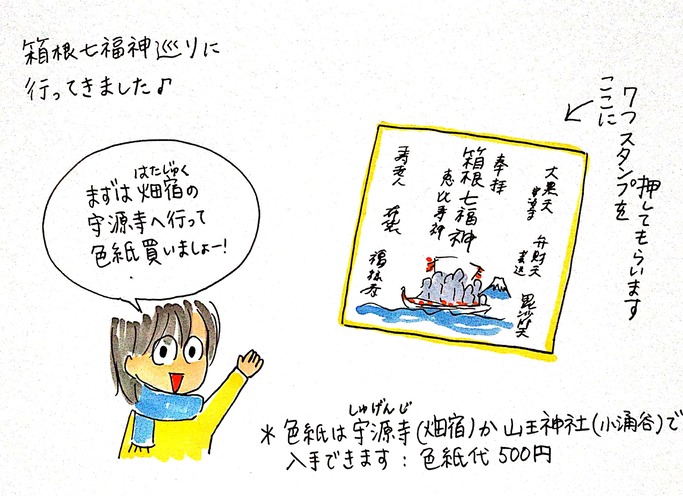 箱根七福神巡りに
行ってきました♪
はたじゅく
まずは畑宿の
守源寺へ行って
色紙買いましょー!
ここに
7つスタンプを
押してもらいます
大黒天
弁財天
毘沙門天
奉拝
箱根七福神
恵比寿神
寿老人
布袋
福禄寿
しゅげんじ
*色紙は守源寺(畑宿)か山王神社(小涌谷)で
入手できます:色紙代500円